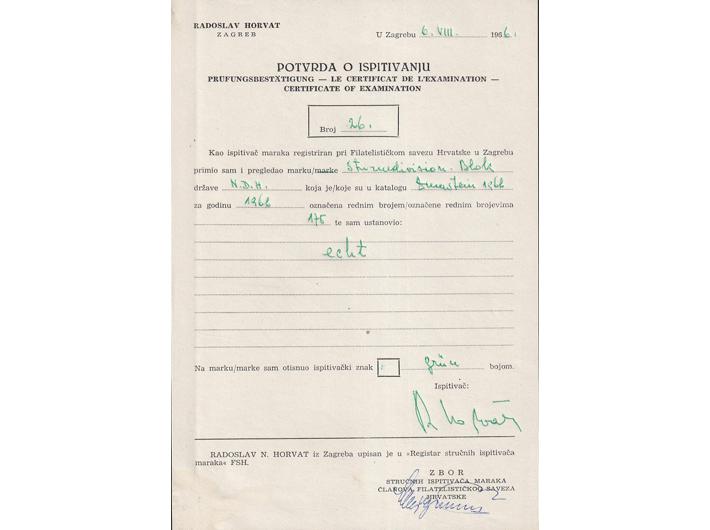 RADOSLAV HORVAT
ZAGREB
U Zagrebu 6. VIII. 1966.
POTVRDA O ISPITIVANJU
PRÜFUNGSBESTÄTIGUNG — LE CERTIFICAT DE L'EXAMINATION —
CERTIFICATE OF EXAMINATION
Broj 26.
Kao ispitivač maraka registriran pri Filatelističkom savezu Hrvatske u Zagrebu
primio sam i pregledao marku/marke Sturmdivision-Blok
države N.D.H. koja je/koje su u katalogu 1966
za godinu 1966 označena rednim brojem/označene rednim brojevima
175 te sam ustanovio:
echt
Na marku/marke sam otisnuo ispitivački znak grün bojom.
Ispitivač:
R. Horvat
RADOSLAV N. HORVAT iz Zagreba upisan je u »Registar stručnih ispitivača
maraka« FSH.
ZBOR
STRUČNIH ISPITIVAČA MARAKA
ČLANOVA FILATELISTIČKOG SAVEZA
HRVATSKE